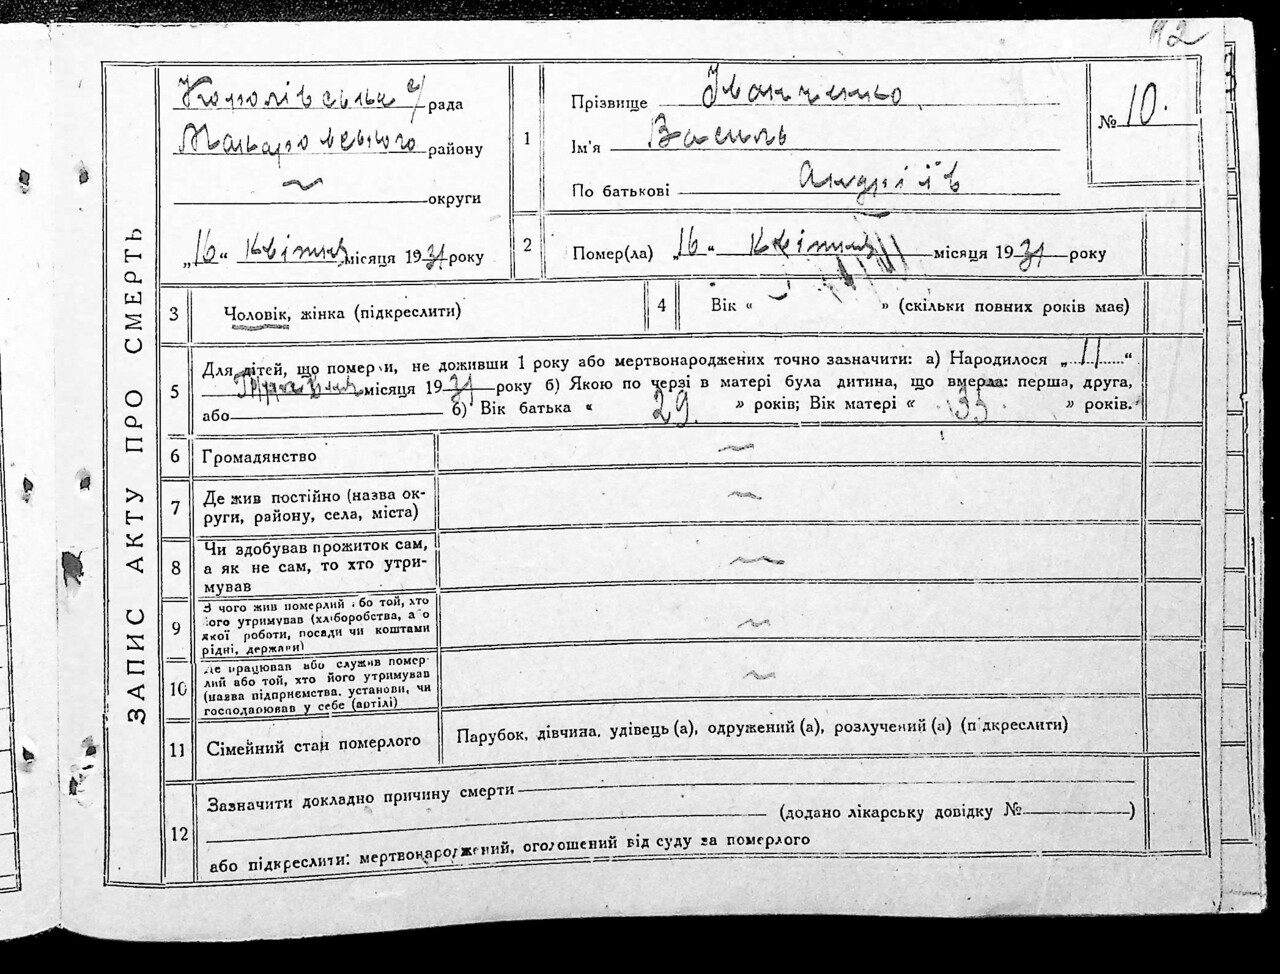 12
ЗАПИС АКТУ ПРО СМЕРТЬ
Королівська с/рада
Макарівського району
~ округи
„16“ квітня місяця 1931 року
1
Прізвище Іванченко
Ім'я Василь
По батькові Андріїв
№ 10.
2
Помер(ла) „16“ квітня місяця 1931 року
3
Чоловік, жінка (підкреслити)
4
Вік « » (скільки повних років має)
5
Для дітей, що померли, не доживши 1 року або мертвонароджених точно зазначити: а) Народилося „11“
місяця 1931 року б) Якою по черзі в матері була дитина, що вмерла: перша, друга,
або б) Вік батька « 29. » років; Вік матері « 33 » років.
6
Громадянство ~
7
Де жив постійно (назва ок-
руги, району, села, міста) ~
8
Чи здобував прожиток сам,
а як не сам, то хто утри-
мував ~
9
З чого жив померлий або той, хто
його утримував (хліборобства, або
якої роботи, посади чи коштами
рідні, держави) ~
10
Де працював або служив помер-
лий або той, хто його утримував
(назва підприємства, установи, чи
господарював у себе (артілі) ~
11
Сімейний стан померлого
Парубок, дівчина, удівець (а), одружений (а), розлучений (а) (підкреслити)
12
Зазначити докладно причину смерти
(додано лікарську довідку № )
або підкреслити: мертвонароджений, оголошений від суду за померлого